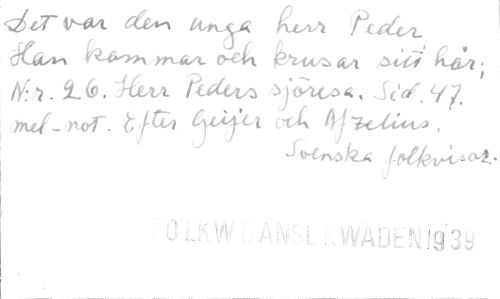 Det var den unga herr Peder
Han kammar och krusar sitt hår;
N:r. 26. Herr Peders sjöresa. Sid. 47.
mel-not. Efter Geijer och Afzelius.
Svenska folkvisor.
1939